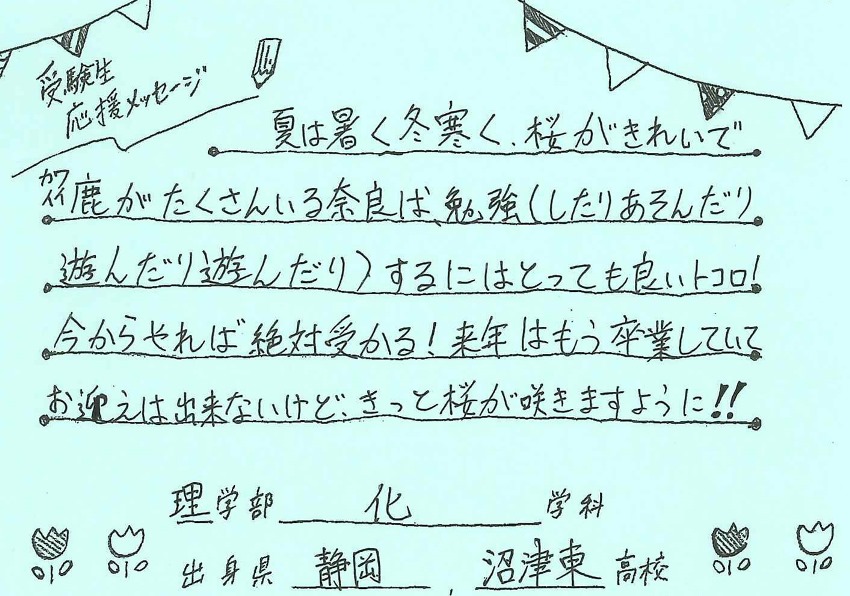 受験生
応援メッセージ
夏は暑く冬寒く、桜がきれいで
カワイイ鹿がたくさんいる奈良は、勉強(したりあそんだり
遊んだり遊んだり)するにはとっても良いトコロ!
今からやれば絶対受かる!来年はもう卒業していて
お迎えは出来ないけど、きっと桜が咲きますように!!
理学部 化 学科
出身県 静岡 , 沼津東 高校